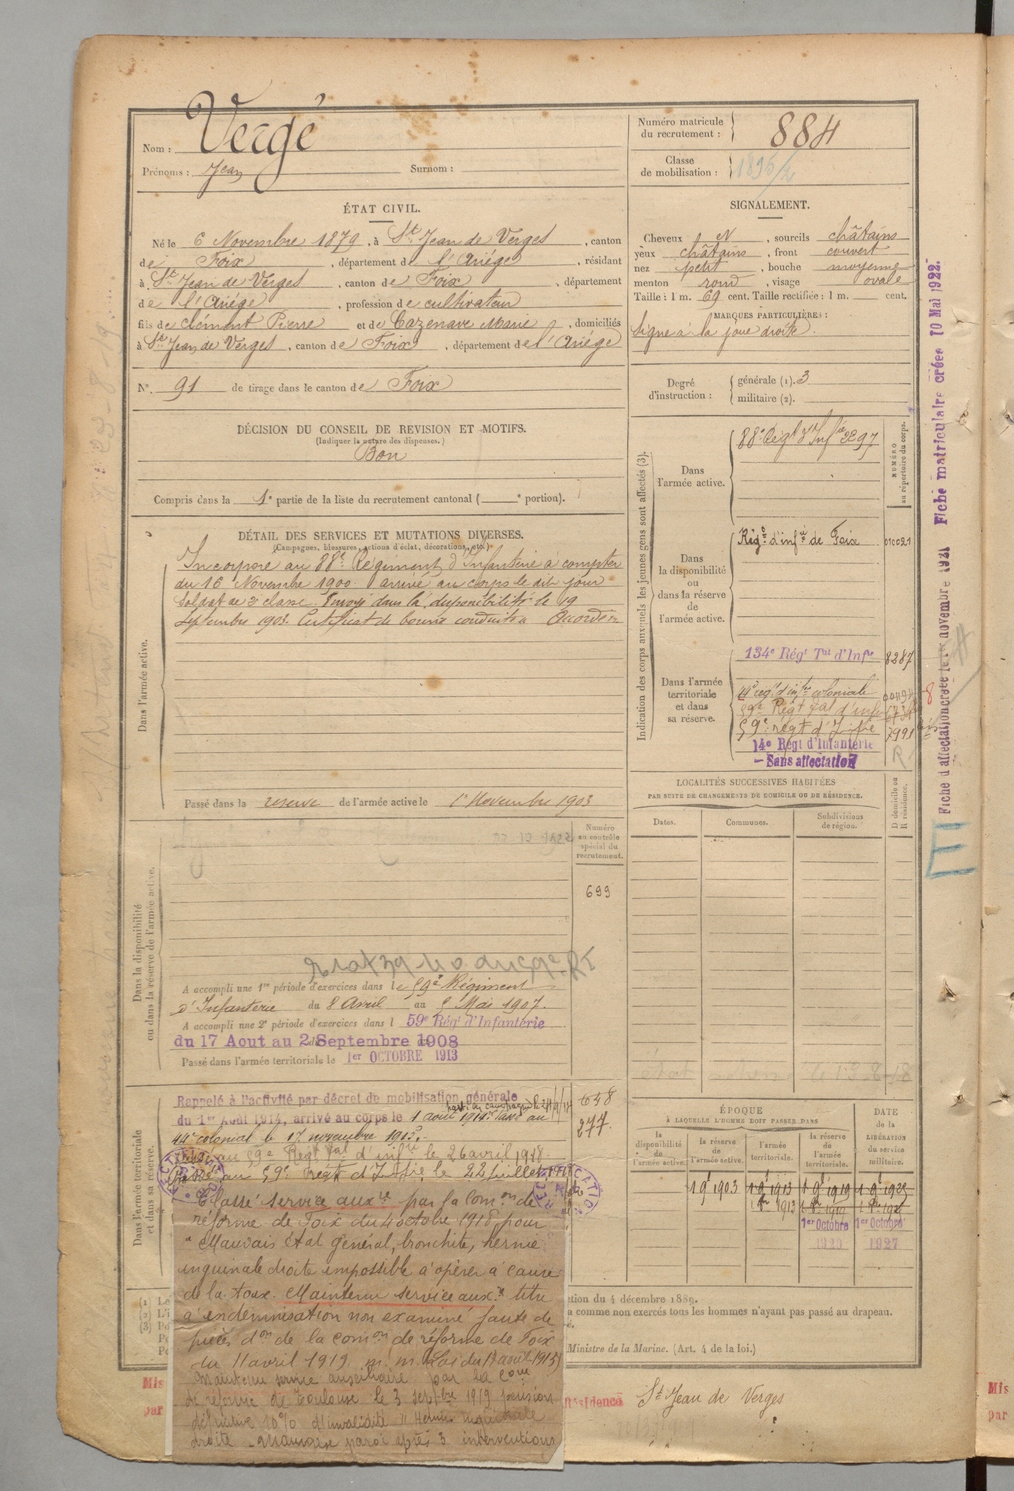 Numéro matricule
du recrutement : 884
Classe
de mobilisation : 1896/2
Nom : Vergé
Prénoms : Jean Surnom :
ÉTAT CIVIL.
Né le 6 Novembre 1879, à St Jean de Verges, canton
de Foix, département de l'Ariège, résidant
à St Jean de Verges, canton de Foix, département
de l'Ariège, profession de cultivateur
fils de Clément Pierre et de Cazenave Marie, domiciliés
à St Jean de Verges, canton de Foix, département de l'Ariège
N° 91 de tirage dans le canton de Foix
DÉCISION DU CONSEIL DE REVISION ET MOTIFS.
(Indiquer la nature des dispenses.)
Bon
Compris dans la 1e partie de la liste du recrutement cantonal ( e portion).
SIGNALEMENT.
Cheveux N, sourcils châtains
yeux châtains, front couvert
nez petit, bouche moyenne
menton rond, visage ovale
Taille : 1 m. 69 cent. Taille rectifiée : 1 m. cent.
MARQUES PARTICULIÈRES :
Signe à la joue droite.
Degré
d'instruction : générale (1). 3
militaire (2).
DÉTAIL DES SERVICES ET MUTATIONS DIVERSES.
(Campagnes, blessures, actions d'éclat, décorations, etc.)
Dans l'armée active.
Incorporé au 88e Régiment d'Infanterie à compter
du 16 Novembre 1900. arrivé au corps le dit jour
soldat de 2e classe. Envoyé dans la disponibilité le 19
Septembre 1903. Certificat de bonne conduite Accordé
Passé dans la réserve de l'armée active le 1er Novembre 1903
Indication des corps auxquels les jeunes gens sont affectés (3).
NUMÉRO
au répertoire du corps.
Dans
l'armée active.
88e Régt d'Infie 2297
Dans
la disponibilité
ou
dans la réserve
de
l'armée active.
Régt d'infie de Foix 010021
Dans l'armée
territoriale
et dans
sa réserve.
134e Régt Tal d'Infie 8287
44e régt d'infie coloniale
59e Régt Tal d'infie
59e régt d'Infie
14e Régt d'Infanterie
— Sans affectation
Fiche d'affectation créée le 1er novembre 1921 Fiche matriculaire créée 10 Mai 1922.
LOCALITÉS SUCCESSIVES HABITÉES
PAR SUITE DE CHANGEMENTS DE DOMICILE OU DE RÉSIDENCE.
Dates. Communes. Subdivisions
de région.
D domicile ou
R résidence.
Dans la disponibilité
ou dans la réserve de l'armée active.
Numéro
au contrôle
spécial du
recrutement.
699
A accompli une 1re période d'exercices dans le 59e Régiment
d'Infanterie du 8 Avril au 5 Mai 1907.
A accompli une 2e période d'exercices dans l 59e Régt d'Infanterie
du 17 Aout au 2 Septembre 1908
Passé dans l'armée territoriale le 1er OCTOBRE 1913
Dans l'armée territoriale
et dans sa réserve.
Rappelé à l'activité par décret de mobilisation générale
du 1er Août 1914, arrivé au corps le 1 août 1914.
44e colonial le 17 novembre 1915.
au 59e Régt Tal d'infie le 26 avril 1918.
au 59e Régt d'Infie le 22 juillet 1918
648
277
Classé service auxre par la Comon de
réforme de Foix du 4 octobre 1918 pour
"Mauvais état général, bronchite, hernie
inguinale droite impossible à opérer à cause
de la toux. Maintenu service auxre titu
d'indemnisation non examiné faute de
pièces don de la comon de réforme de Foix
du 11 avril 1919. m. m. (Loi du 17 août 1915)
Maintenu service auxiliaire par la Com
de réforme de Toulouse le 3 septbre 1919 pension
définitive 10% d'invalidité "Hernie inguinale
droite - mauvaise paroi après 3 interventions
ÉPOQUE
À LAQUELLE L'HOMME DOIT PASSER DANS
la
disponibilité
de
l'armée active.
la réserve
de
l'armée active.
l'armée
territoriale.
la réserve
de
l'armée
territoriale.
DATE
DE LA
LIBÉRATION
du service
militaire.
1 9bre 1903 1 9bre 1913 1 9bre 1919 1 9bre 1925
1er Octobre 1er Octobre
1927
du 4 décembre 1889.
a comme non exercés tous les hommes n'ayant pas passé au drapeau.
Ministre de la Marine. (Art. 4 de la loi.)
Résidence St Jean de Verges
Mis
par
Mis
par